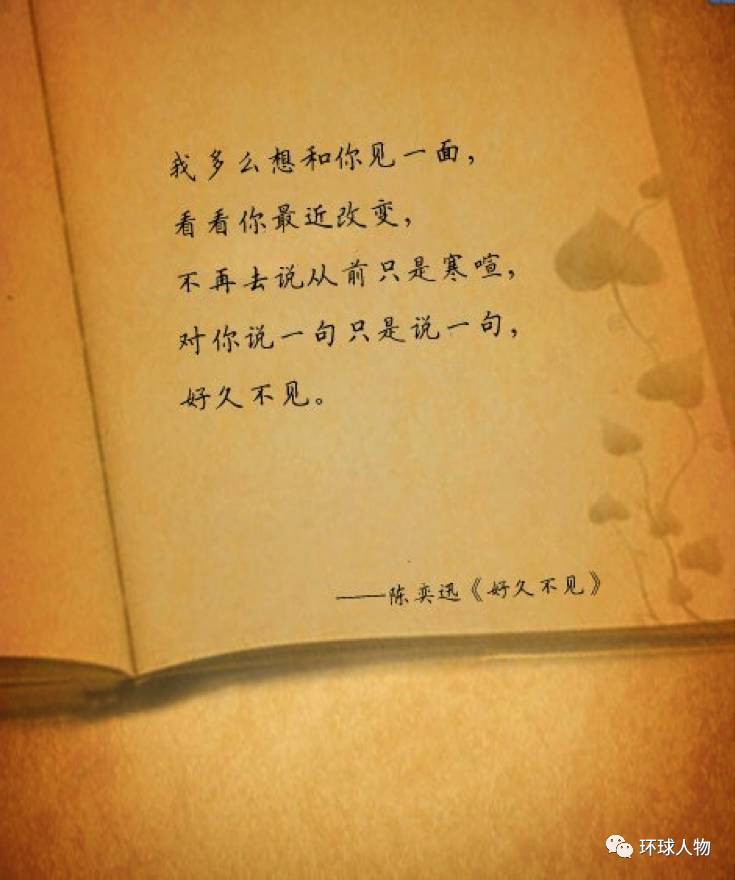 我多么想和你见一面，
看看你最近改变，
不再去说从前只是寒喧，
对你说一句只是说一句，
好久不见。
——陈奕迅《好久不见》
环球人物